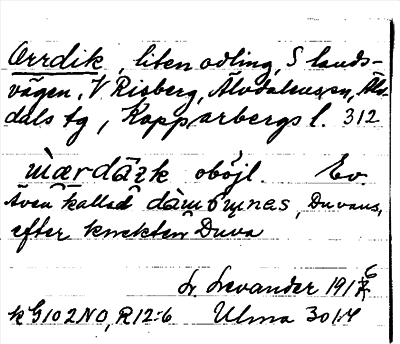 Orrdik, liten odling, S lands-
vägen, V Risberg, Älvdalens sn, Älv-
dals tg, Kopparbergs l. 312
oböjl. Ev.
Även kallad
efter knekten Duva
L. Levander 1916
k G102NO, R12:6 Ulma 301:4